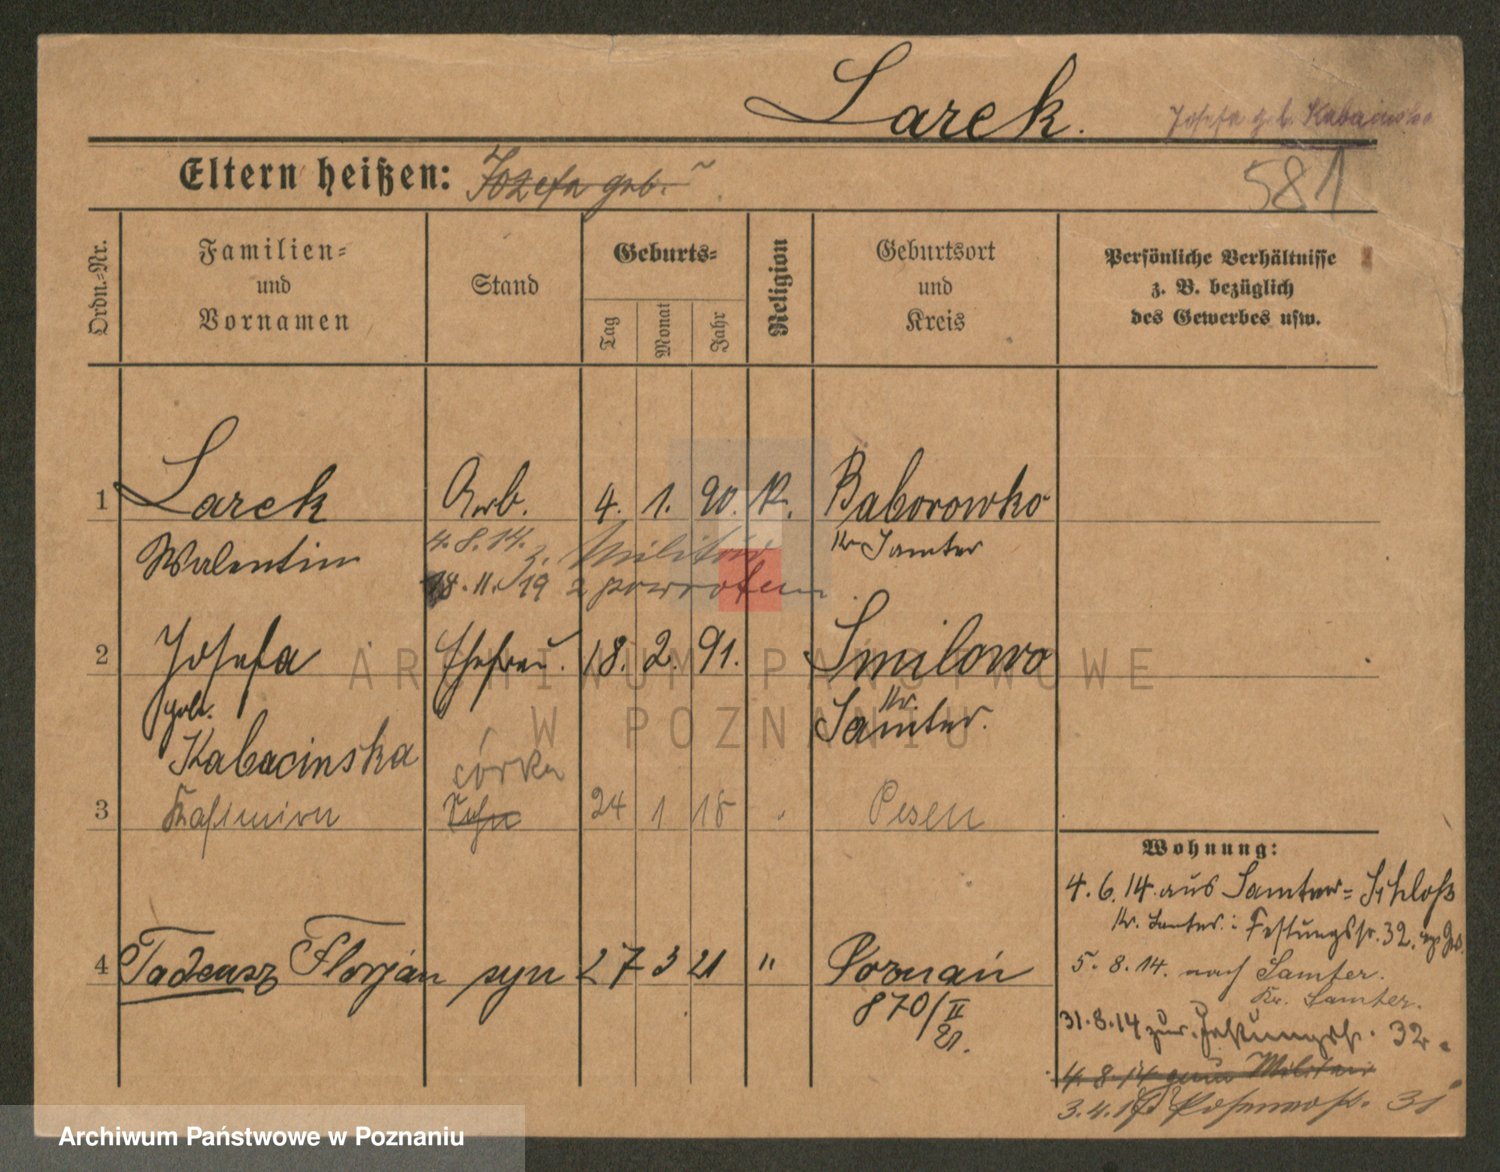 Larek.
Josefa geb. Kabacinska
Eltern heißen: Jozefa geb.
581
Ordn.-Nr.
Familien-
und
Vornamen
Stand
Geburts-
Tag
Monat
Jahr
Religion
Geburtsort
und
Kreis
Persönliche Verhältnisse
z. B. bezüglich
des Gewerbes usw.
1 Larek Arb. 4. 1. 90. K. Baborowko
Walentin 4.8.14. z. Militär Kr Samter
18.11.19 z powrotem
2 Josefa Ehefrau. 18. 2. 91. Smilowo
geb. Kr. Samter.
Kabacinska
córka
3 Kasimira Sohn 24 1 18 Posen
4 Tadeusz Florjan syn 27 3 21 " Poznań
870/II
21.
Wohnung:
4.6.14. aus Samter-Schloß
Kr. Samter: Festungsstr. 32.
5.8.14. nach Samter.
Kr. Samter.
31.8.14 zur. Festungsstr. 32.
4.8.14 zum Militär
3.4.19 31
ARCHIWUM PAŃSTWOWE
W POZNANIU
Archiwum Państwowe w Poznaniu